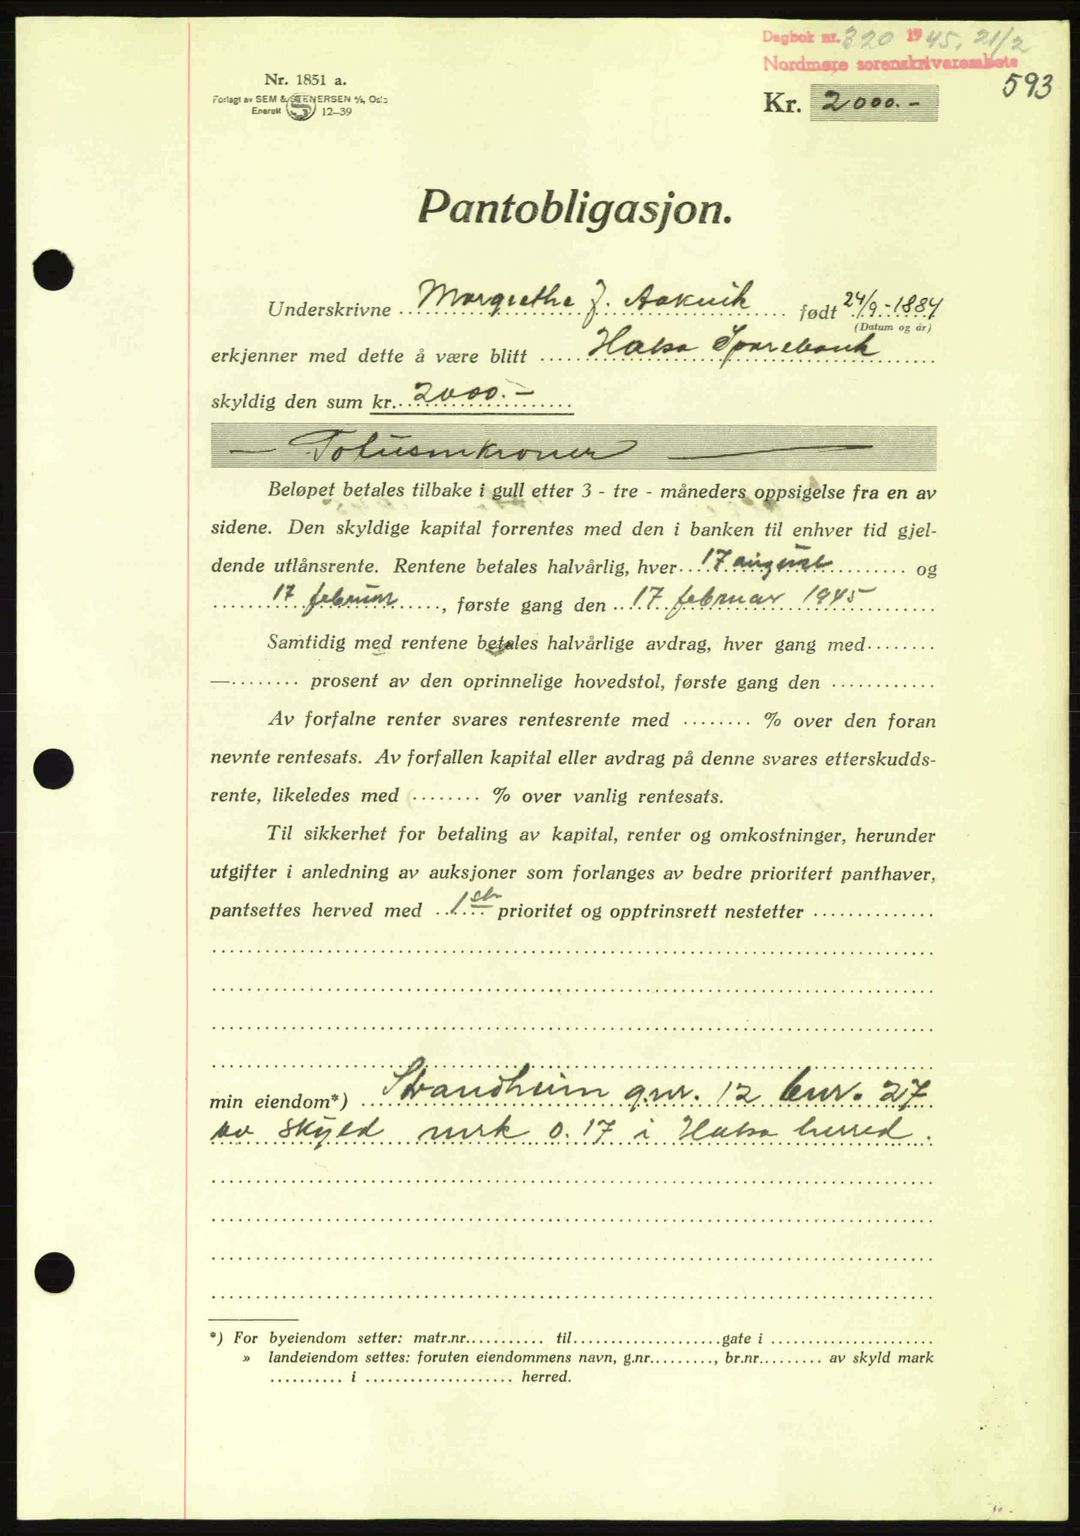 Dagbok nr. 320 1945, 21/2
Nordmøre sorenskriverembete
593
Nr. 1851 a.
Forlagt av SEM & STENERSEN A/S, Oslo
Enerett S 12-39
Kr. 2000.-
Pantobligasjon.
Underskrivne Margrethe J. Aakvik født 24/9-1884
(Datum og år)
erkjenner med dette å være blitt Halsa Sparebank
skyldig den sum kr. 2000.-
— Totusenkroner —
Beløpet betales tilbake i gull etter 3 - tre - måneders oppsigelse fra en av
sidene. Den skyldige kapital forrentes med den i banken til enhver tid gjel-
dende utlånsrente. Rentene betales halvårlig, hver 17 august og
17 februar, første gang den 17 februar 1945
Samtidig med rentene betales halvårlige avdrag, hver gang med
— prosent av den oprinnelige hovedstol, første gang den
Av forfalne renter svares rentesrente med % over den foran
nevnte rentesats. Av forfallen kapital eller avdrag på denne svares etterskudds-
rente, likeledes med % over vanlig rentesats.
Til sikkerhet for betaling av kapital, renter og omkostninger, herunder
utgifter i anledning av auksjoner som forlanges av bedre prioritert panthaver,
pantsettes herved med 1ste prioritet og opptrinsrett nestetter
min eiendom*) Strandheim g.nr. 12 bnr. 27
av skyld mrk 0.17 i Halsa herred.
*) For byeiendom setter: matr.nr. til gate i
» landeiendom settes: foruten eiendommens navn, g.nr., br.nr. av skyld mark
i herred.